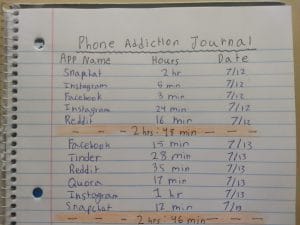 Phone Addiction Journal
App Name Hours Date
Snapchat 2 hr 7/12
Instagram 5 min 7/12
Facebook 3 min 7/12
Instagram 24 min 7/12
Reddit 16 min 7/12
— — — 2 hrs: 48 min — — —
Facebook 15 min 7/13
Tinder 28 min 7/13
Reddit 35 min 7/13
Quora 17 min 7/13
Instagram 1 hr 7/13
Snapchat 12 min 7/13
— — 2 hr: 46 min — —